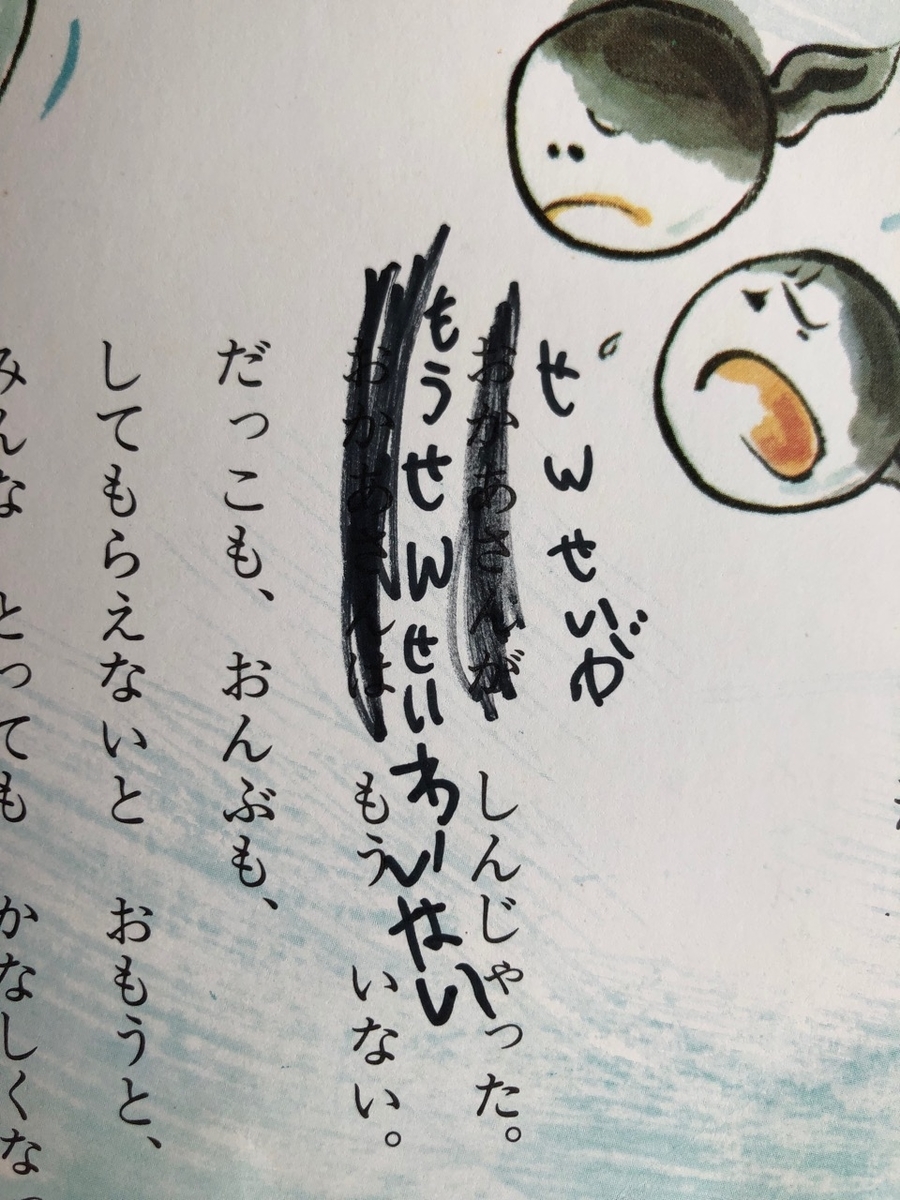 せんせいが
おかあさんが しんじゃった。
もうせんせいわいない
おかあさんは もう いない。
だっこも、おんぶも、
してもらえないと おもうと、
みんな とっても かなしくな